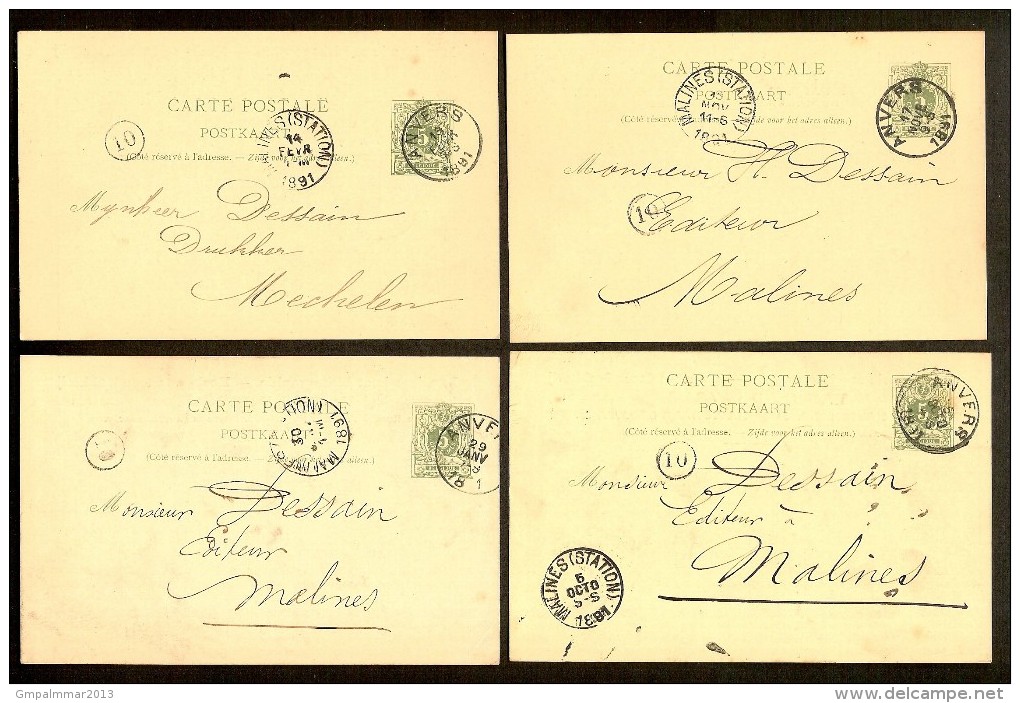 CARTE POSTALE
POSTKAART
(Côté réservé à l'adresse. — Zijde voor het adres alleen.)
10
(STATION)
14
FEVR
1891
ANVERS
1891
Mynheer Dessain
Drukker
Mechelen
CARTE POSTALE
POSTKAART
(Côté réservé à l'adresse. — Zijde voor het adres alleen.)
MALINES (STATION)
NOV
11-S
1891
ANVERS
17
1891
Monsieur H. Dessain
10
Editeur
Malines
CARTE POSTALE
POSTKAART
(Côté réservé à l'adresse. — Zijde voor het adres alleen.)
MALINES
30
1891
ANVERS
29
JANV
18 1
Monsieur Dessain
Editeur
Malines
CARTE POSTALE
POSTKAART
(Côté réservé à l'adresse. — Zijde voor het adres alleen.)
ANVERS
10
Monsieur Dessain
Editeur à
Malines
MALINES (STATION)
6
OCTO
5-S
1891
Gmpalmmar2013
delcampe.net